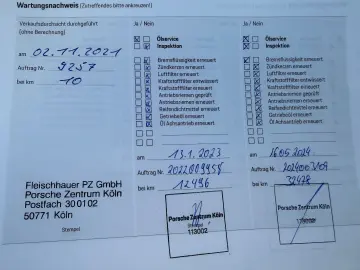 Wartungsnachweis (Zutreffendes bitte ankreuzen!)
Verkaufsdurchsicht durchgeführt
(ohne Berechnung)
am 02.11.2021
Auftrag Nr. 9257
bei km 10
Fleischhauer PZ GmbH
Porsche Zentrum Köln
Postfach 30 01 02
50771 Köln
Stempel
Ja / Nein
Ölservice
Inspektion
Bremsflüssigkeit erneuert
Zündkerzen erneuert
Luftfilter erneuert
Kraftstofffilter entwässert
Kraftstofffilter erneuert
Antriebsriemen geprüft
Antriebsriemen erneuert
Reifendichtmittel erneuert
Getriebeöl erneuert
Öl Achsantrieb erneuert
am 13.1.2023
Auftrag Nr. 2022009958
bei km 12496
Porsche Zentrum Köln
Stempel
113002
Ja / Nein
Ölservice
Inspektion
Bremsflüssigkeit erneuert
Zündkerzen erneuert
Luftfilter erneuert
Kraftstofffilter entwässert
Kraftstofffilter erneuert
Antriebsriemen geprüft
Antriebsriemen erneuert
Reifendichtmittel erneuert
Getriebeöl erneuert
Öl Achsantrieb erneuert
am 16.05.2024
Auftrag Nr.
bei km 32478
Porsche Zentrum Köln